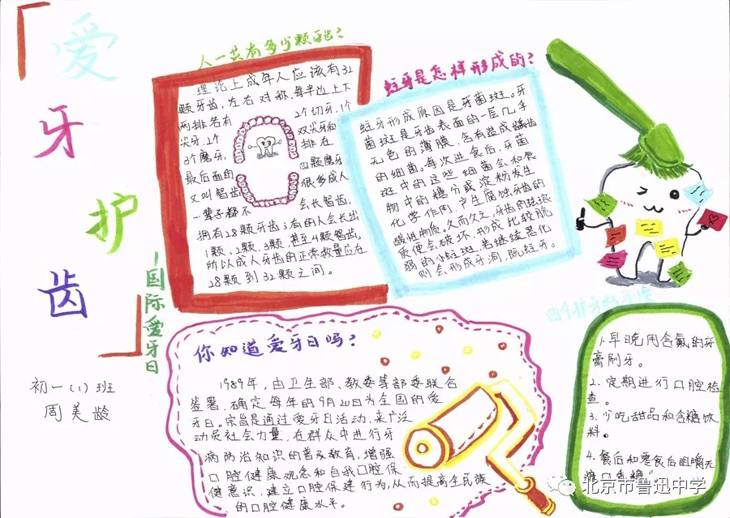 爱
牙
护
齿
国际爱牙日
初一(1)班
周美龄
人一共有多少颗牙齿?
理论上成年人应该有32
颗牙齿,左右对称,每半边上下
两排各有 2个切牙,1个
尖牙,2个 双尖牙和
3个磨牙, 排在
最后面的 四颗磨牙
又叫智齿 很多成人
一辈子都不 会长智齿,
拥有28颗牙齿;有的人会长出
1颗、2颗、3颗,甚至4颗智齿,
所以成人牙齿的正常数量应在
28颗到32颗之间。
蛀牙是怎样形成的?
蛀牙形成原因是牙菌斑。牙
菌斑是牙齿表面的一层几乎
无色的薄膜,含有造成龋齿
的细菌。每次进食后,牙菌
斑中的这些细菌会和食
物中的糖分或淀粉发生
化学作用,产生腐蚀牙齿的
酸性物质。久而久之,牙齿的珐琅
质便会破坏,形成比较脆
弱的小蛀斑,若继续恶化
则会形成牙洞,既蛀牙。
你知道爱牙日吗?
1989年,由卫生部、教委等部委联合
签署,确定每年的9月20日为全国的爱
牙日。宗旨是通过爱牙日活动,来广泛
动员社会力量,在群众中进行牙
病防治知识的普及教育,增强
口腔健康观念和自我口腔保
健意识,建立口腔保健行为,从而提高全民族
的口腔健康水平。
1.早晚用含氟的牙
膏刷牙。
2.定期进行口腔检
查。
3.少吃甜品和含糖饮
料。
4.餐后和零食后咀嚼无
北京市鲁迅中学